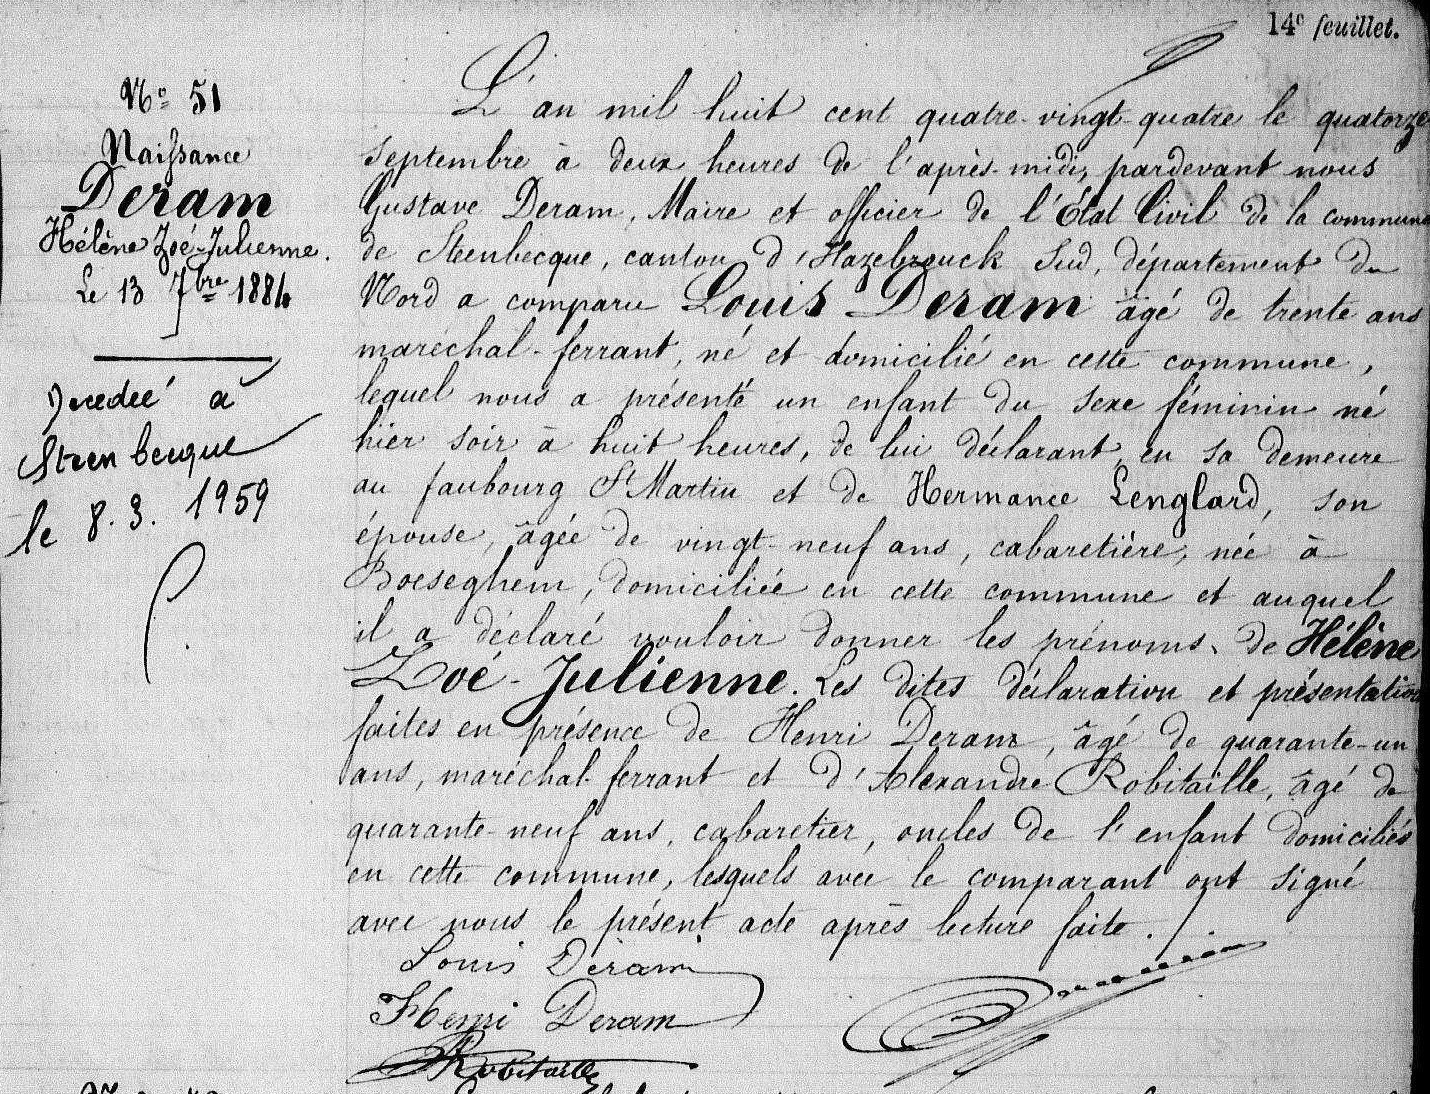 14e feuillet.
No 51
Naissance
Deram
Hélène Zoé-Julienne.
Le 13 7bre 1884
Décédée à
Steenbecque
le 8.3.1959
L'an mil huit cent quatre-vingt-quatre le quatorze
septembre à deux heures de l'après-midi, pardevant nous
Gustave Deram, Maire et officier de l'État Civil de la commune
de Steenbecque, canton d'Hazebrouck Sud, département du
Nord a comparu Louis Deram âgé de trente ans
maréchal-ferrant, né et domicilié en cette commune,
lequel nous a présenté un enfant du sexe féminin né
hier soir à huit heures, de lui déclarant, en sa demeure
au faubourg St Martin et de Hermance Lenglard, son
épouse, âgée de vingt-neuf ans, cabaretière, née à
Boeseghem, domiciliée en cette commune et auquel
il a déclaré vouloir donner les prénoms de Hélène
Zoé-Julienne. Les dites déclaration et présentation
faites en présence de Henri Deram, âgé de quarante-un
ans, maréchal-ferrant et d'Alexandre Robitaille, âgé de
quarante-neuf ans, cabaretier, oncles de l'enfant domiciliés
en cette commune, lesquels avec le comparant ont signé
avec nous le présent acte après lecture faite.
Louis Deram
Henri Deram
Robitaille